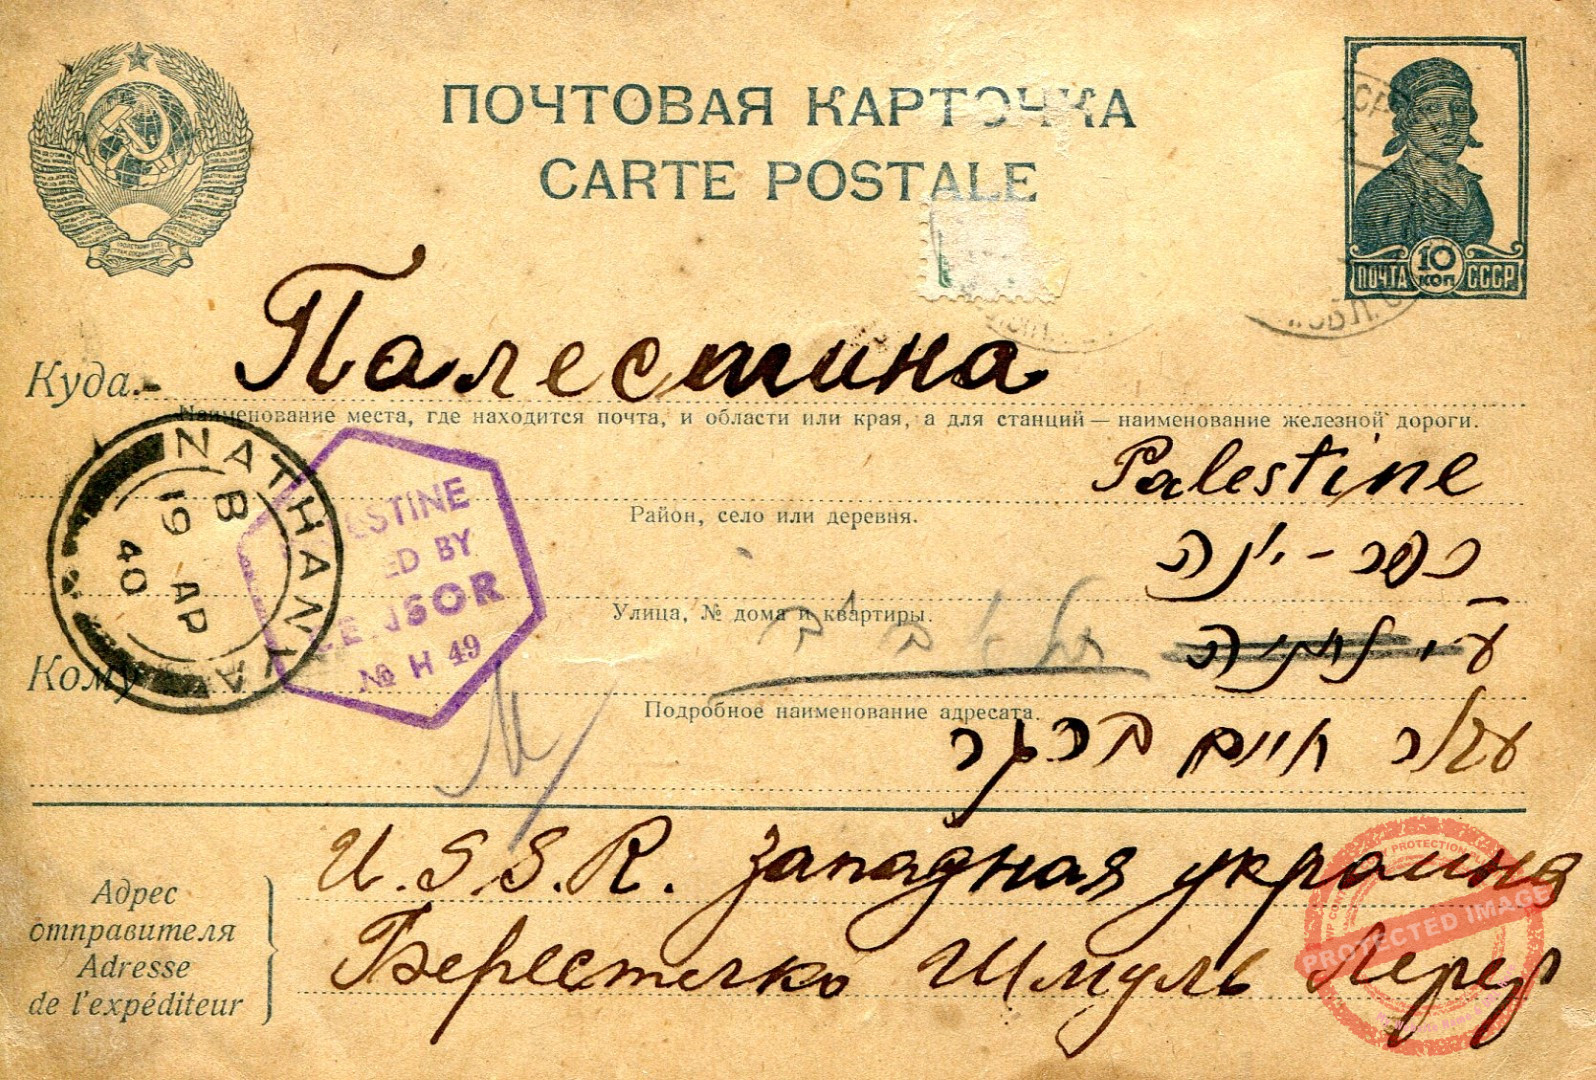 ПОЧТОВАЯ КАРТОЧКА
CARTE POSTALE
ПОЧТА 10 КОП СССР
Куда Палестина
Наименование места, где находится почта, и области или края, а для станций — наименование железной дороги.
Palestine
Район, село или деревня.
כפר-יונה
Улица, № дома и квартиры.
תל אביב
ע"י נתניה
Кому
Подробное наименование адресата.
עבור חיים ברגר
NATHANYA
B
19 AP
40
ESTINE
ED BY
CENSOR
№ H 49
Адрес
отправителя
Adresse
de l'expéditeur
U.S.S.R. Западная украина
Берестечко Шмуль Лерер
PROTECTED IMAGE